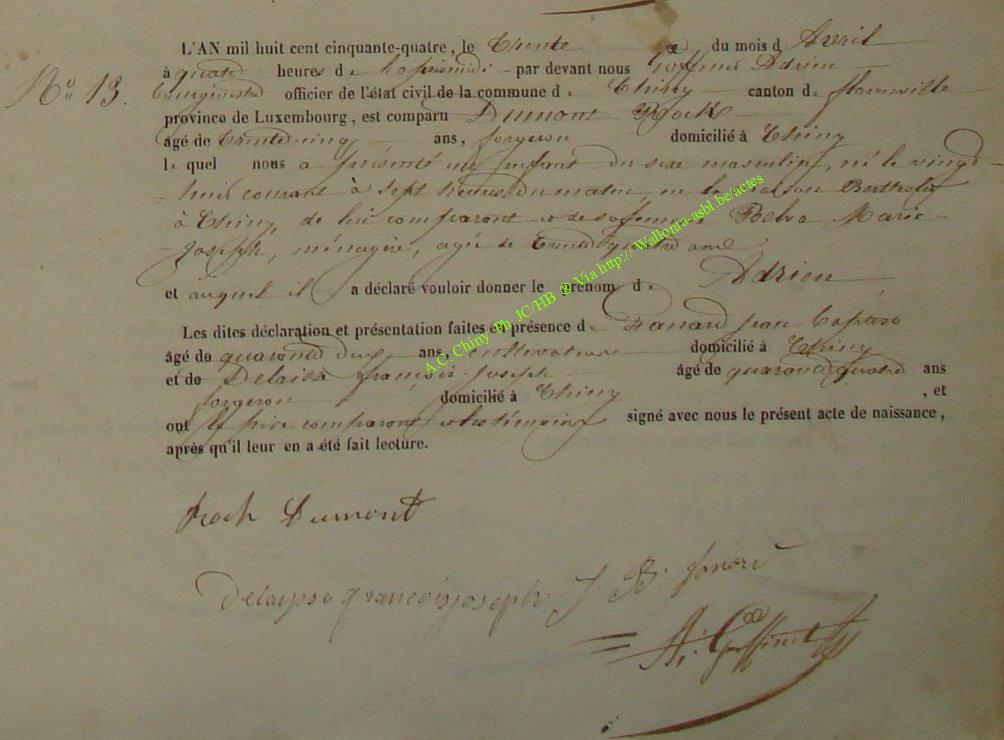 N° 13.
L'AN mil huit cent cinquante-quatre, le Trente du mois d Avril
à quatre heures de l'apresmidi par devant nous Goffinet Adrien
Bourgmestre officier de l'état civil de la commune de Chiny canton de florenville
province de Luxembourg, est comparu Dumont Rock
âgé de Trente cinq ans, forgeron domicilié à Chiny
le quel nous a présenté un enfant du sexe masculin, né le vingt
huit courant à sept heures du matin, en la maison
à Chiny, de lui comparant et de sa femme, Marie
Joseph, ménagère, agée de Trente quatre ans
et auquel il a déclaré vouloir donner le prénom de Adrien
Les dites déclaration et présentation faites en présence de Jean Baptiste
âgé de quarante deux ans, cultivateur domicilié à Chiny
et de Delaisse françois Joseph âgé de quarante quatre ans
forgeron domicilié à Chiny , et
ont le père comparant et les témoins signé avec nous le présent acte de naissance,
après qu'il leur en a été fait lecture.
Roch Dumont
françois joseph J B
A. Goffinet
A.C. Chiny Ph. JC/HB ® Via http://Wallonia-asbl.be/actes